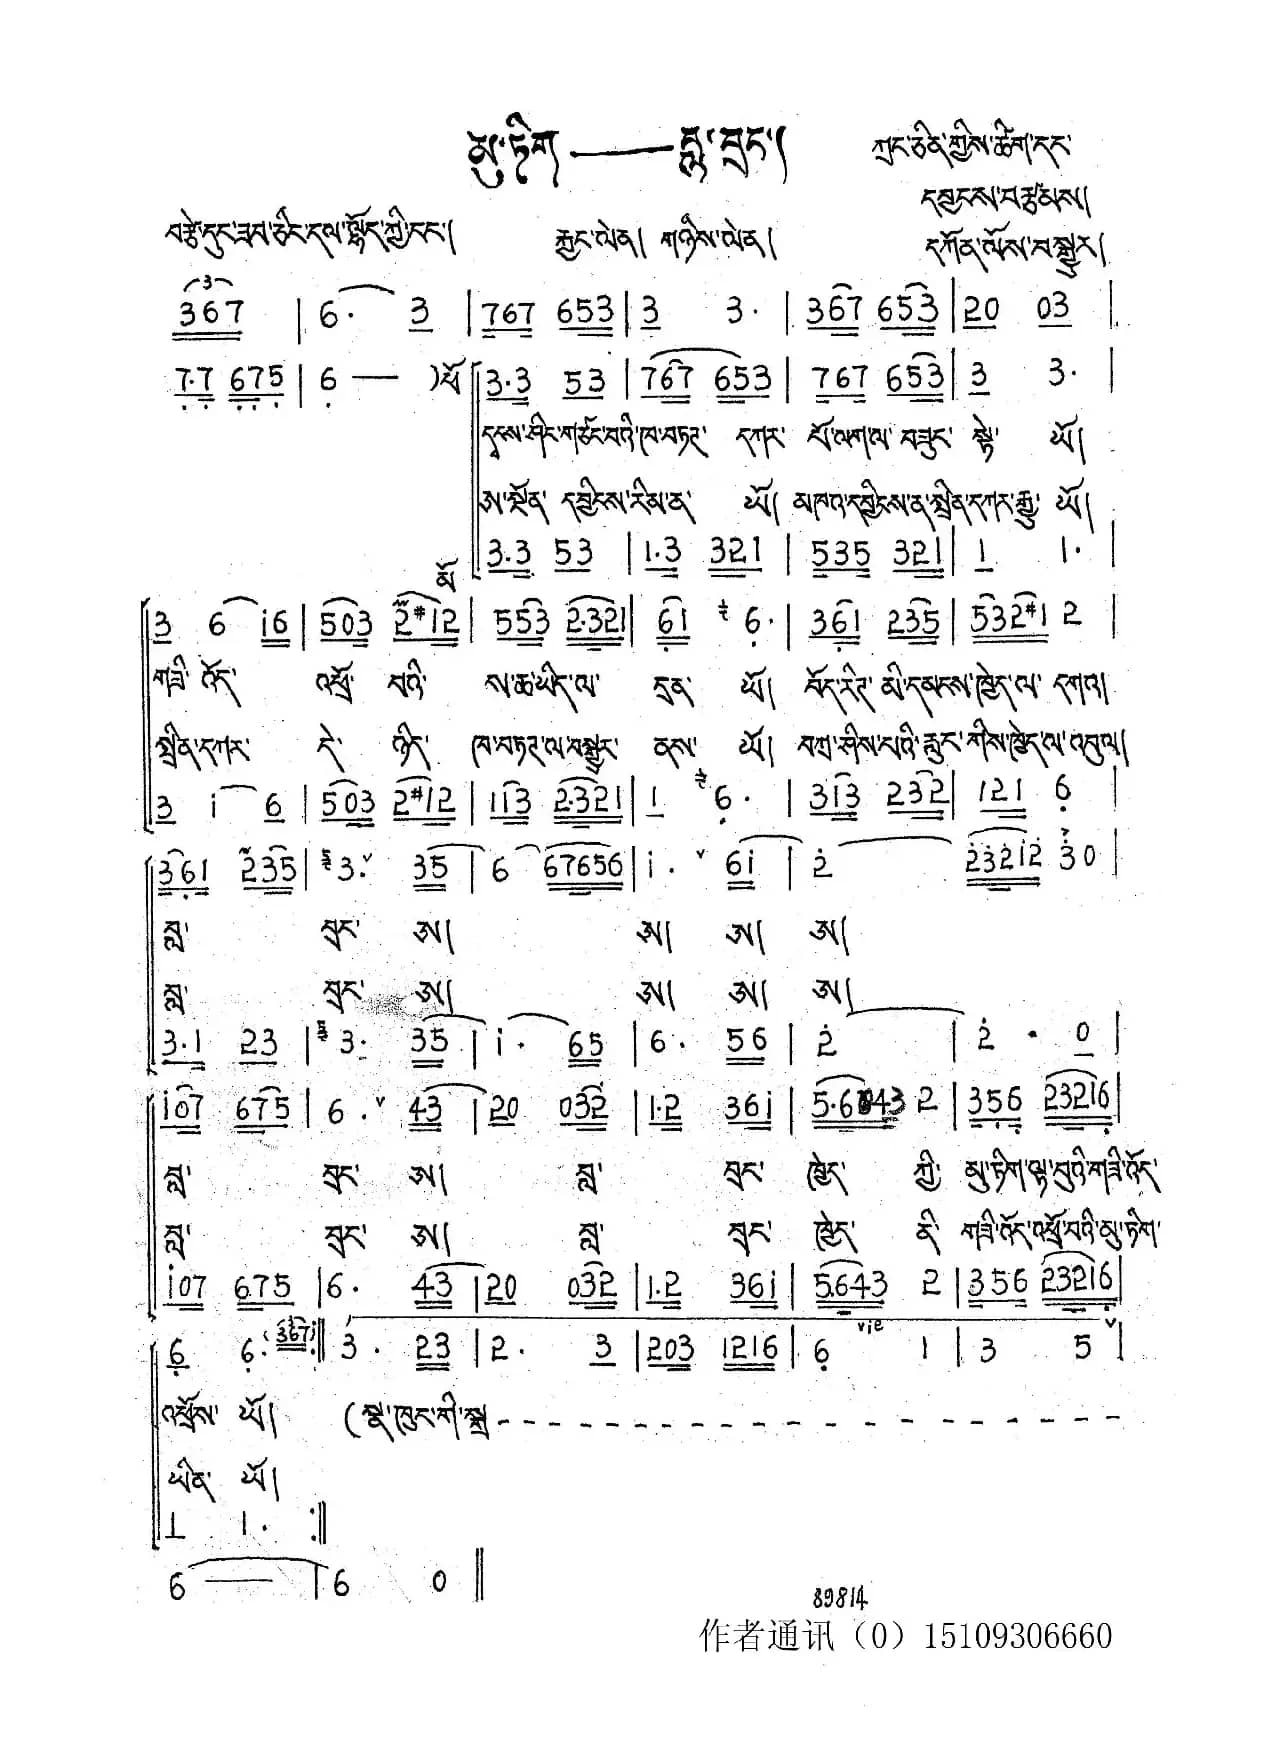 མུ་ཏིག——བླ་བྲང་།
ཀྲང་ཅིན་གྱིས་ཚིག་དང་
དབྱངས་བརྩམས།
བརྩེ་དུང་ཟབ་ཅིང་དལ་ལྷོད་ཀྱི་ངང་། རྐྱང་ལེན། གཉིས་ལེན། དཀོན་ལོས་བསྒྱུར།
367 | 6· 3 | 767 653 | 3 3· | 367 653 | 20 03 |
7·7 675 | 6 — ) ཕོ 3·3 53 | 767 653 | 767 653 | 3 3· |
དྭངས་ཤིང་གཙང་བའི་ཁ་བཏགས་ དཀར་ པོ་ལག་ལ་ བཟུང་ སྟེ་ ཡོ།
ཨ་སྔོན་ དབྱིངས་རིམ་ན་ ཡོ། མཁའ་དབྱིངས་ན་སྤྲིན་དཀར་རྒྱུ་ ཡོ།
མོ 3·3 53 | 1·3 321 | 535 321 | 1 1· |
3 6 i6 | 503 2#12 | 553 2·321 | 61 6· | 361 235 | 532#1 2 |
གཟི་འོད་ འཕྲོ་ བའི་ ས་ཆ་ཡིད་ལ་ དྲན་ ཡོ། བོད་རིགས་མི་དམངས་ཁྱེད་ལ་ དགའ།
སྤྲིན་དཀར་ དེ་ ཉིད་ ཁ་བཏགས་ལ་བསྒྱུར་ ནས་ ཡོ། བཀྲ་ཤིས་པའི་རླུང་གིས་ཁྱེད་ལ་འབུལ།
3 i 6 | 503 2#12 | 113 2·321 | 1 6· | 313 232 | 121 6
361 235 | 3· 35 | 6 67656 | i· 6i | 2 23212 30 |
བླ་ བྲང་ ཨ། ཨ། ཨ། ཨ།
བླ་ བྲང་ ཨ། ཨ། ཨ། ཨ།
3·1 23 | 3· 35 | i· 65 | 6· 56 | 2 | 2 · 0 |
i07 675 | 6· 43 | 20 032 | 1·2 36i | 2 | 356 23216 |
བླ་ བྲང་ ཨ། བླ་ བྲང་ ཁྱེད་ ཀྱི་ མུ་ཏིག་ལྟ་བུའི་གཟི་འོད་
བླ་ བྲང་ ཨ། བླ་ བྲང་ ཁྱེད་ ནི་ གཟི་འོད་འཕྲོ་བའི་མུ་ཏིག་
i07 675 | 6· 43 | 20 032 | 1·2 36i | 5·643 2 | 356 23216 |
6 6· (367i :‖ 3· 23 | 2· 3 | 203 1216 | 6 1 | 3 5 |
འཕྲོས་ ཡོ། (སྣ་ཁུང་གི་སྒྲ - - - - - - - - - - - - - - - - -
ཡིན་ ཡོ།
1 1· :‖
6 — | 6 0 ‖
89814
作者通讯（0）15109306660